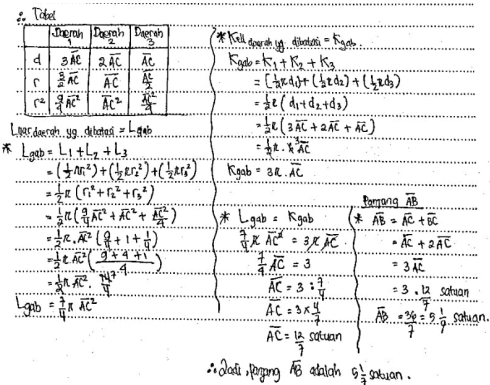 ∴ Tabel
Daerah 1 Daerah 2 Daerah 3
d 3AC 2AC AC
r 3/2 AC AC AC/2
r² 9/4 AC² AC² AC²/4
Luas daerah yg. dibatasi = Lgab
* Lgab = L1 + L2 + L3
= (½πr1²) + (½πr2²) + (½πr3²)
= ½π (r1² + r2² + r3²)
= ½π (9/4 AC² + AC² + AC²/4)
= ½π . AC² (9/4 + 1 + ¼)
= ½π AC² (9+4+1 / 4)
= ½π AC² . 14 7/4
Lgab = 7/4 π AC²
* Kell daerah yg. dibatasi = Kgab.
Kgab = K1 + K2 + K3
= (½πd1) + (½πd2) + (½πd3)
= ½π (d1 + d2 + d3)
= ½π (3AC + 2AC + AC)
Kgab = 3π . AC
* Lgab = Kgab
7/4 π AC² = 3π AC
7/4 AC = 3
AC = 3 : 7/4
AC = 3 × 4/7
AC = 12/7 satuan
Panjang AB
* AB = AC + BC
= AC + 2AC
= 3AC
= 3 . 12/7 satuan
AB = 36/7 = 5 1/7 satuan.
∴ Jadi, panjang AB adalah 5 1/7 satuan.